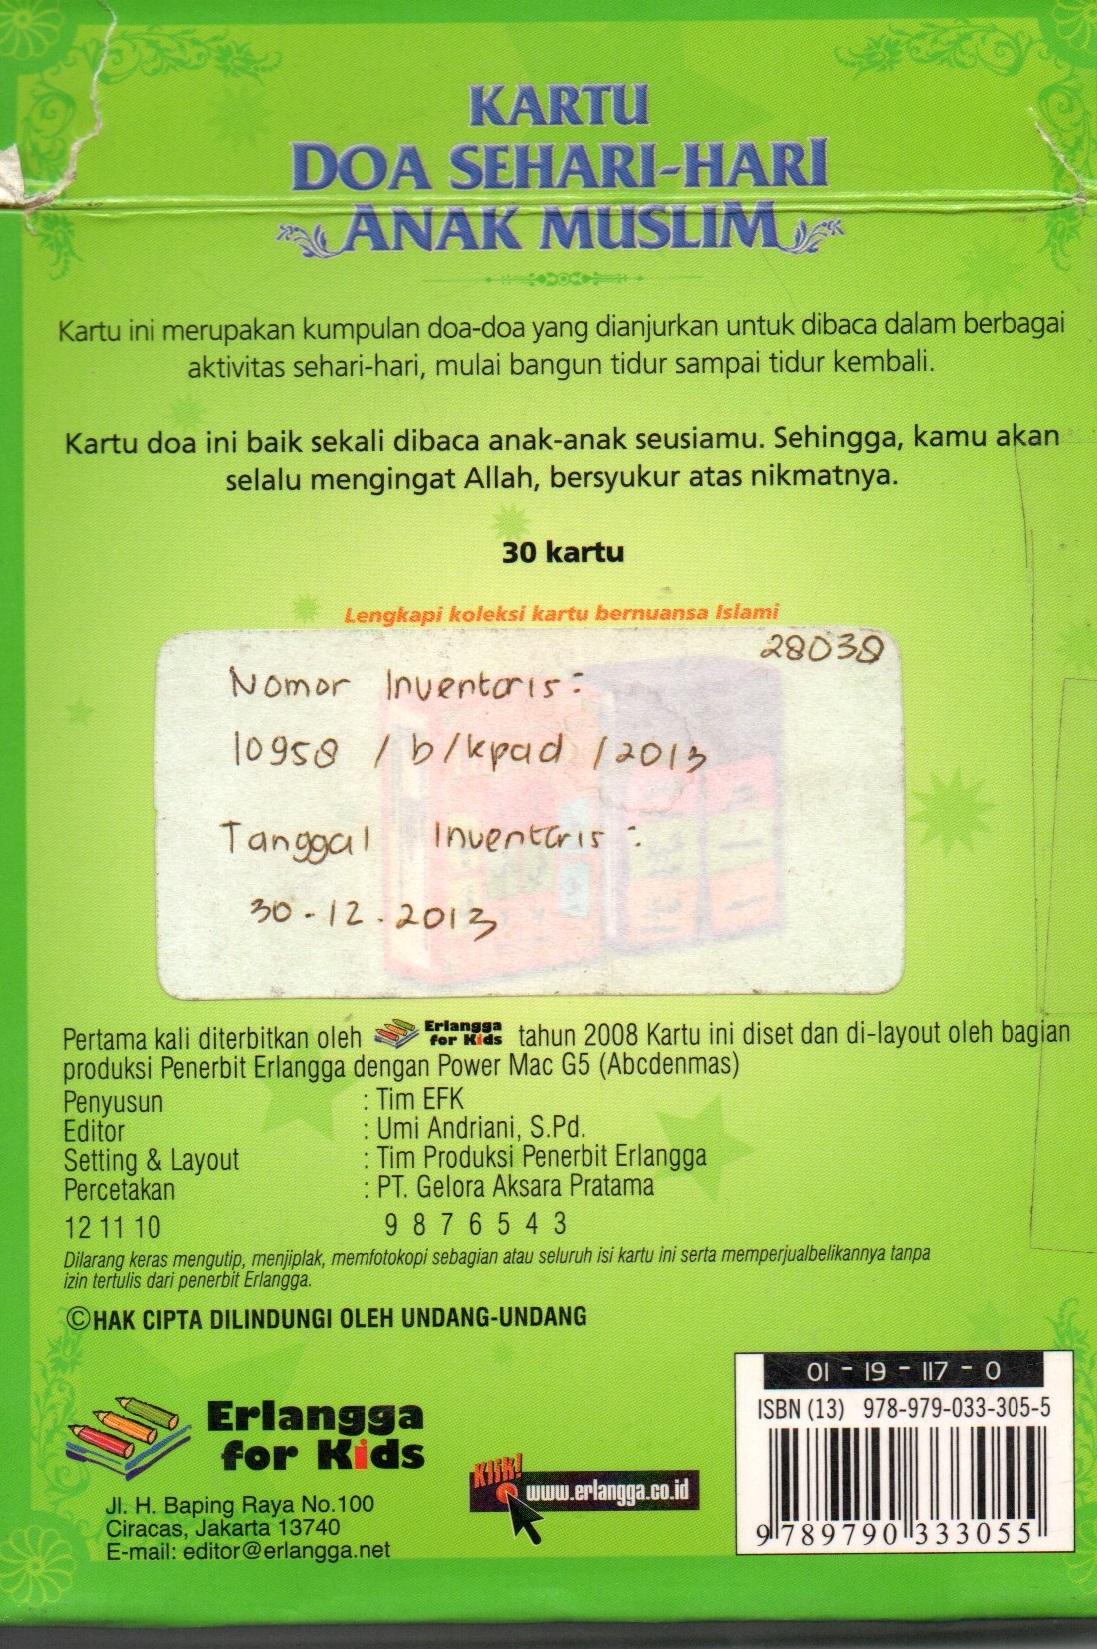 KARTU
DOA SEHARI-HARI
ANAK MUSLIM
Kartu ini merupakan kumpulan doa-doa yang dianjurkan untuk dibaca dalam berbagai
aktivitas sehari-hari, mulai bangun tidur sampai tidur kembali.
Kartu doa ini baik sekali dibaca anak-anak seusiamu. Sehingga, kamu akan
selalu mengingat Allah, bersyukur atas nikmatnya.
30 kartu
Lengkapi koleksi kartu bernuansa Islami
28038
Nomor Inventaris:
10958 / b/kpad /2013
Tanggal Inventaris :
30-12.2013
Pertama kali diterbitkan oleh Erlangga for Kids tahun 2008 Kartu ini diset dan di-layout oleh bagian
produksi Penerbit Erlangga dengan Power Mac G5 (Abcdenmas)
Penyusun : Tim EFK
Editor : Umi Andriani, S.Pd.
Setting & Layout : Tim Produksi Penerbit Erlangga
Percetakan : PT. Gelora Aksara Pratama
12 11 10 9 8 7 6 5 4 3
Dilarang keras mengutip, menjiplak, memfotokopi sebagian atau seluruh isi kartu ini serta memperjualbelikannya tanpa
izin tertulis dari penerbit Erlangga.
©HAK CIPTA DILINDUNGI OLEH UNDANG-UNDANG
Erlangga
for Kids
Jl. H. Baping Raya No.100
Ciracas, Jakarta 13740
E-mail: editor@erlangga.net
Klik!
www.erlangga.co.id
01 - 19 - 117 - 0
ISBN (13) 978-979-033-305-5
9 789790 333055